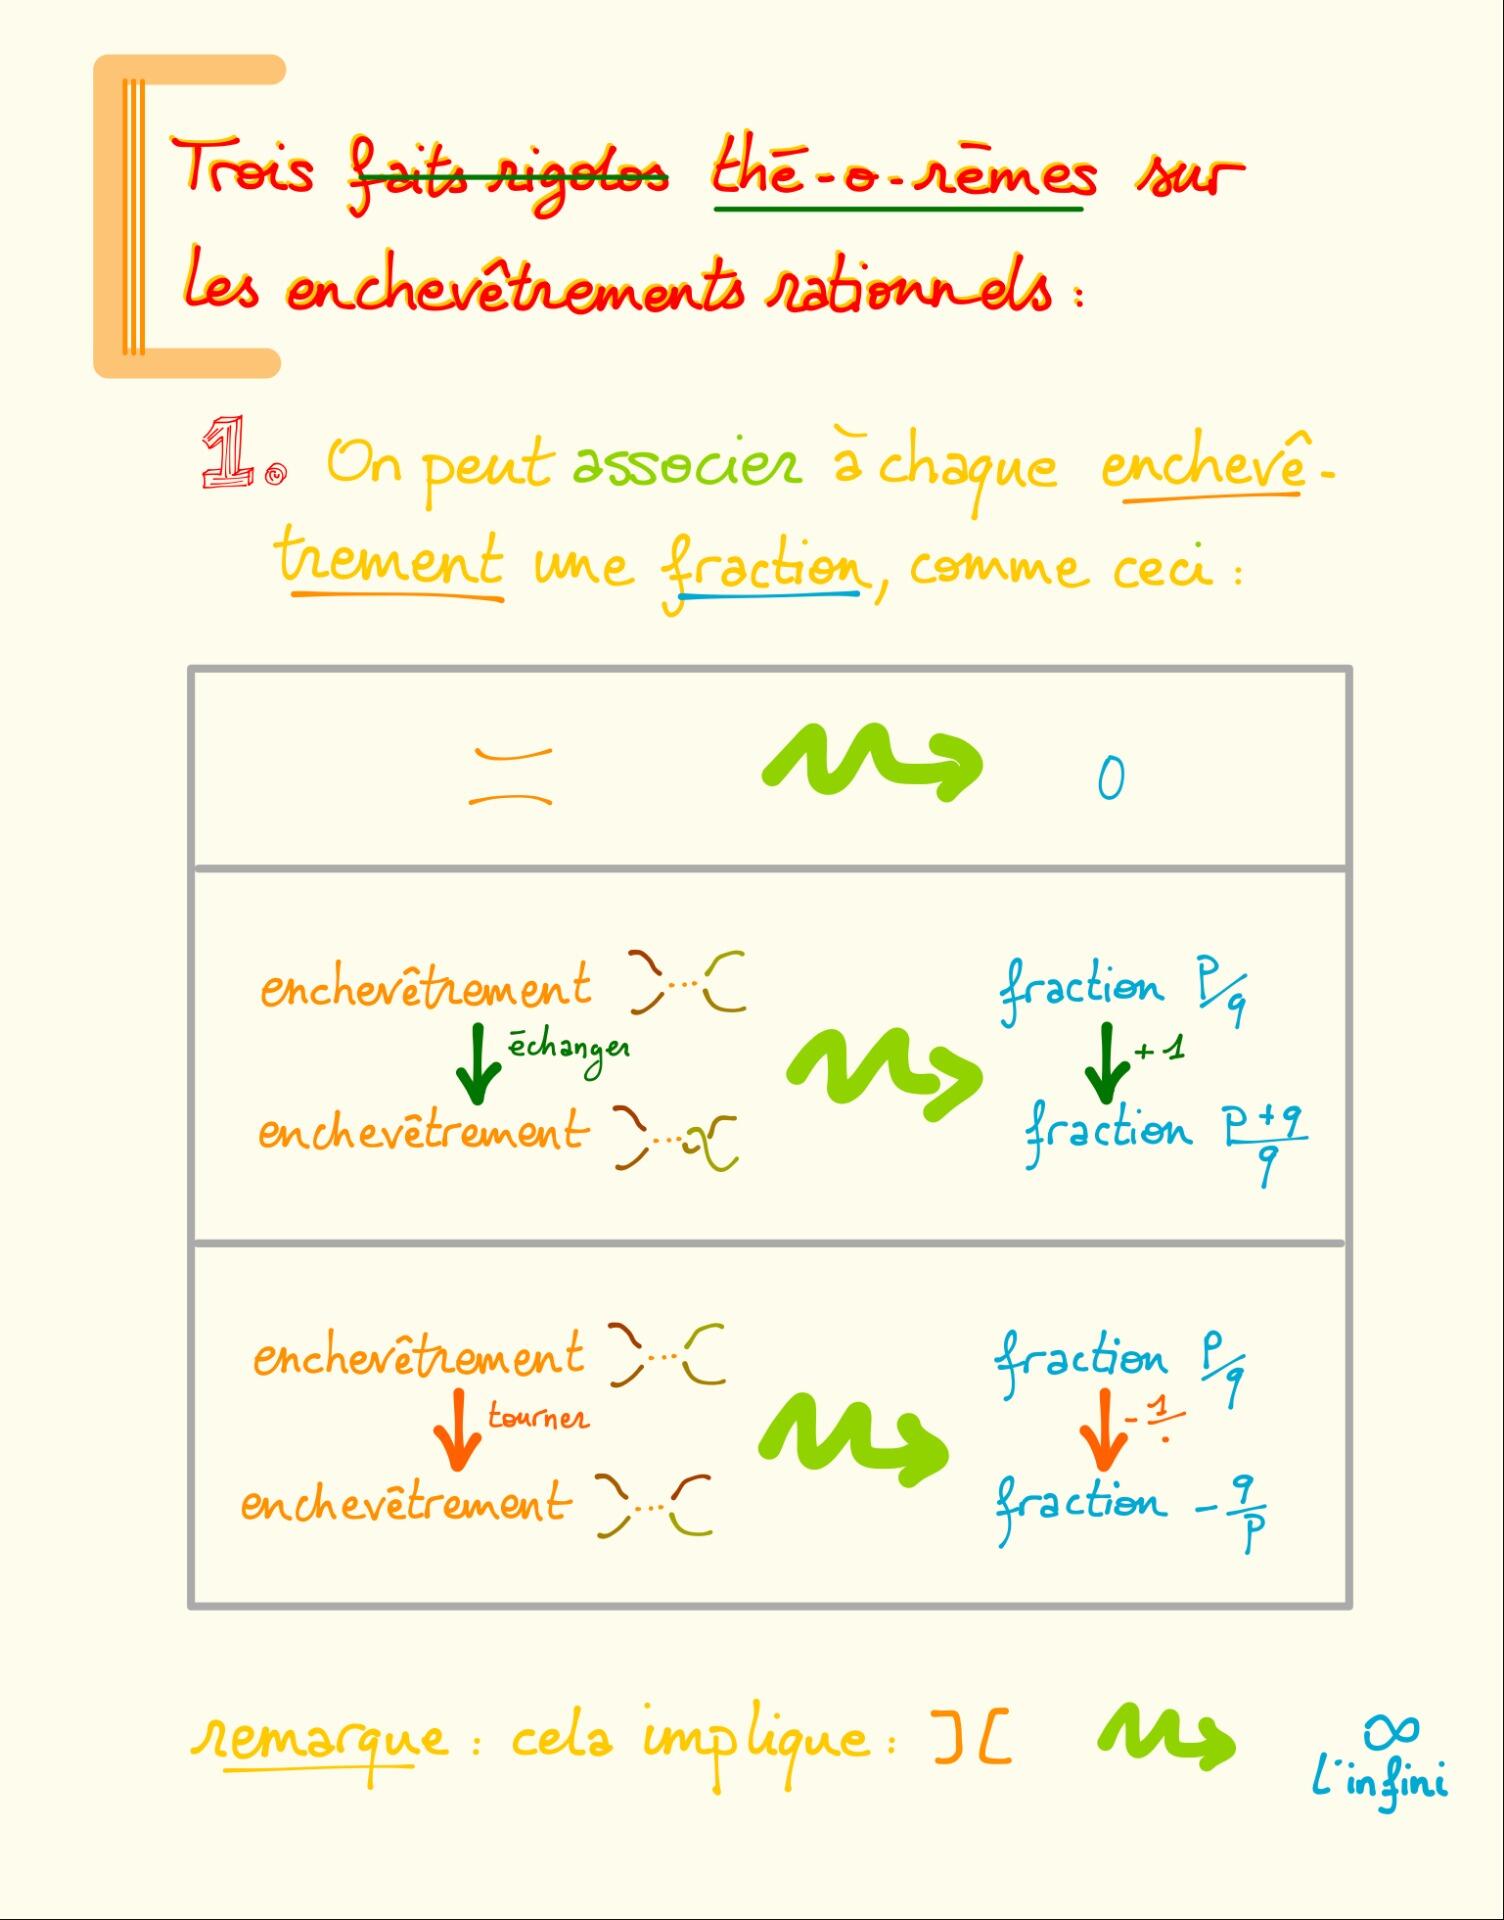 Trois faits rigolos thé-o-rèmes sur
les enchevêtrements rationnels :
1. On peut associer à chaque enchevê-
trement une fraction, comme ceci :
0
enchevêtrement fraction p/q
échanger +1
enchevêtrement fraction p+q/q
enchevêtrement fraction p/q
tourner -1/.
enchevêtrement fraction -q/p
remarque : cela implique : ∞
l'infini